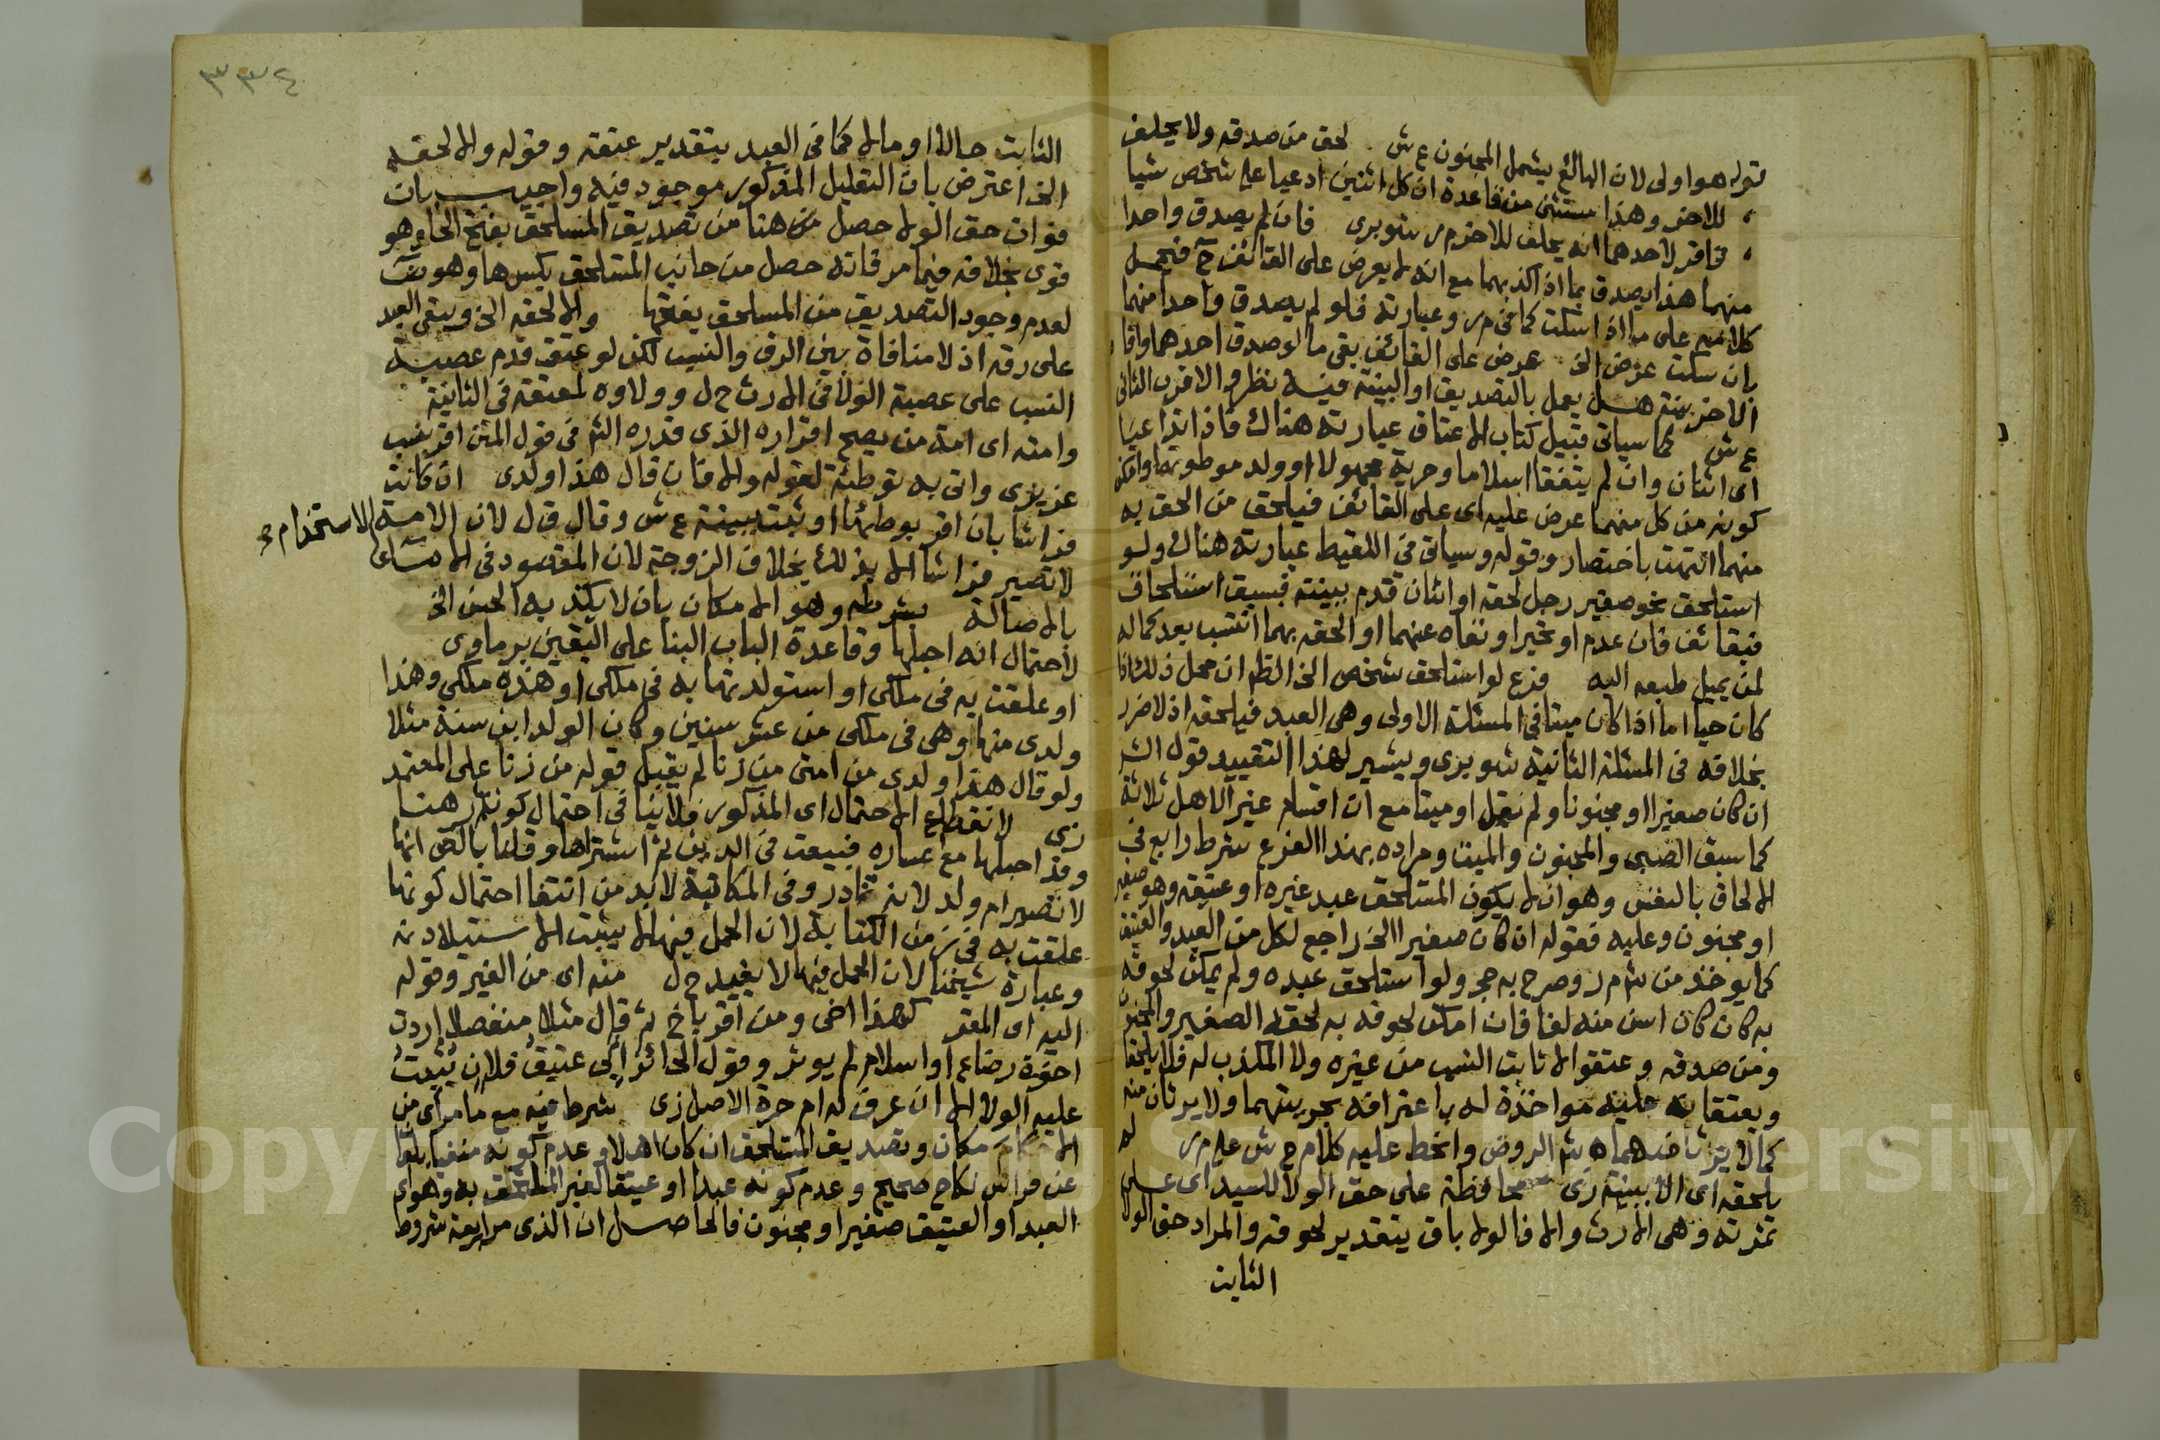 قوله هو اولى لان البالغ يشمل المجنون ع ش لحق من صدقه ولا يحلف
للاخر وهذا مستثنى من قاعدة ان كل اثنين ادعيا على شخص شيا
فاقر لاحدهما انه يحلف للاخر م ر شوبري فان لم يصدق واحدا
منهما هذا يصدق بما اذا كذبهما مع انه لا يعرض على القائف ح فيحمل
كلامه على ما اذا سكت كما في م ر وعبارته فلو لم يصدق واحدا منهما
بان سكت عرض الخ عرض على القائف بقي ما لو صدق احدهما واقام
الاخر بينة هل يعمل بالتصديق او البينة فيه نظر والاقرب الثاني
ع ش كما سياتي قبيل كتاب الاعتاق عبارته هناك فاذا تداعيا
اي اثنان وان لم يتفقا اسلاما وحرية مجهولا او ولد موطوتهما وامكن
كونه من كل منهما عرض عليه اي على القائف فيلحق من الحقه به
منهما انتهت باختصار وقوله وسياتي في اللقيط عبارته هناك ولو
استلحق نحو صغير رجل لحقه او اثنان قدم ببينة فبسبق استلحاق
فبقائف فان عدم او تحير او نفاه عنهما او الحقه بهما انتسب بعد كماله
لمن يميل طبعه اليه فرع لو استلحق شخص الخ الظه ان محل ذلك اذا
كان حيا اما اذا كان ميتا في المسئلة الاولى وهي العبد فيلحقه اذ لا ضرر
بخلافه في المسئلة الثانية شوبري ويشير لهذا التقييد قول الش
ان كان صغيرا او مجنونا ولم نقل او ميتا مع ان اقسام غير الاهل ثلاثة
كما سبق الصبي والمجنون والميت ومراده بهذا الفرع شرط رابع في
الالحاق بالنفس وهو ان لا يكون المستلحق عبد غيره او عتيقه وهو صغير
او مجنون وعليه فقوله ان كان صغيرا الخ راجع لكل من العبد والعتيق
كما يوخذ من ش م ر وصرح به حج ولو استلحق عبده ولم يمكن لحوقه
به كان كان اسن منه لغا فان امكن لحوقه به لحقه الصغير والمجنون
ومن صدقه وعتقوا لا ثابت النسب من غيره ولا المكذب له فلا يلحقا
ويعتقا به عليه مواخذة له باعترافه بحريتهما ولا يرثان منه
كما لا يرث منهما ه ش الروض وانحط عليه كلام ح ش على م ر له
يلحقه اي الا ببينة زي محافظة على حق الولا للسيد اي على
ثمرته وهي الارث والا فالولا باق بتقدير لحوقه والمراد حق الولا
الثابت
٣٣٤
الثابت حالا او مالا كما في العبد بتقدير عتقه وقوله والا لحقه
الخ اعترض بان التعليل المذكور موجود فيه واجيب بان
فوات حق الولا حصل من هنا من تصديق المستلحق بفتح الحا وهو
قوي بخلافه فيما مر فانه حصل من جانب المستلحق بكسرها وهو ضعيف
لعدم وجود التصديق من المسلحق بفتحها والا لحقه الخ ويبقى العبد
على رقه اذ لا منافاة بين الرق والنسب لكن لو عتق قدم عصبة
النسب على عصبة الولا في الارث ح ل وولاوه لمعتقه في الثانية
وامته اي امة من يصح اقراره الذي قدره الش في قول المتن اقر بنسب
عزيزي واتى به توطئة لقوله والا فان قال هذا ولدي ان كانت
فراشا بان اقر بوطئها او ثبت ببينة ع ش وقال ق ل لان الامة
لا تصير فراشا الا بذلك بخلاف الزوجة لان المقصود في الاماء الاستخدام ء
بالاصالة بشرطه وهو الامكان بان لا يكذبه الحس الخ
لاحتمال انه احبلها وقاعدة الباب البنا على اليقين برماوي
او علقت به في ملكي او استولدتها به في ملكي او هذه ملكي وهذا
ولدي منها وهي في ملكي من عشر سنين وكان الولد ابن سنة مثلا
ولو قال هذا ولدي من امتي من زنا لم يقبل قوله من زنا على المعتمد
زي لانقطاع الاحتمال اي المذكور فلا ينافي احتمال كونه رهنا
وقد احبلها مع اعساره فبيعت في الدين ثم اشتراها وقلنا بالاصح انها
لا تصير ام ولد لانه نادر وفي المكاتبة لا بد من انتفا احتمال كونها
علقت به في زمن الكتابة لان الحمل فيها لا يثبت الاستيلاد ته
وعبارة شيخنا لان الحمل فيها لا يفيد ح ل منه اي من الغير وقوله
اليه اي المقر كهذا اخي ومن اقر باخ ثم قال مثلا منفصلا اردت
اخوة رضاع او اسلام لم يوثر وقول الحائز اني عتيق فلان يثبت
عليه الولا الا ان عرف له ام حرة الاصل زي شرط فيه مع ما مر اي من
الامكان وتصديق المستلحق ان كان اهلا وعدم كونه منفيا بلعان
عن فراش نكاح صحيح وعدم كونه عبدا او عتيقا لغير المستلحق به وهو اي
العبد او العتيق صغيرا او مجنون فالحاصل ان الذي مر اربعة شروط
Copyright © King Saud University